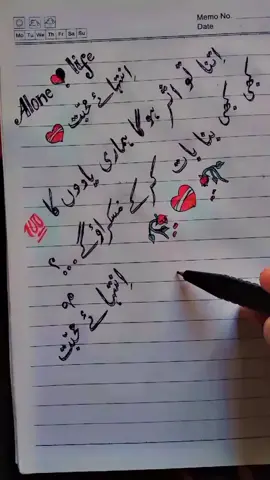 Memo No.
Date
Mo Tu We Th Fr Sa Su
Alone life
انتہائے محبت
اتنا تو اثر ہو گا ہماری یادوں کا
کبھی کبھی بنا بات
کرکے مسکراؤ گے...؟
انتہائے محبت